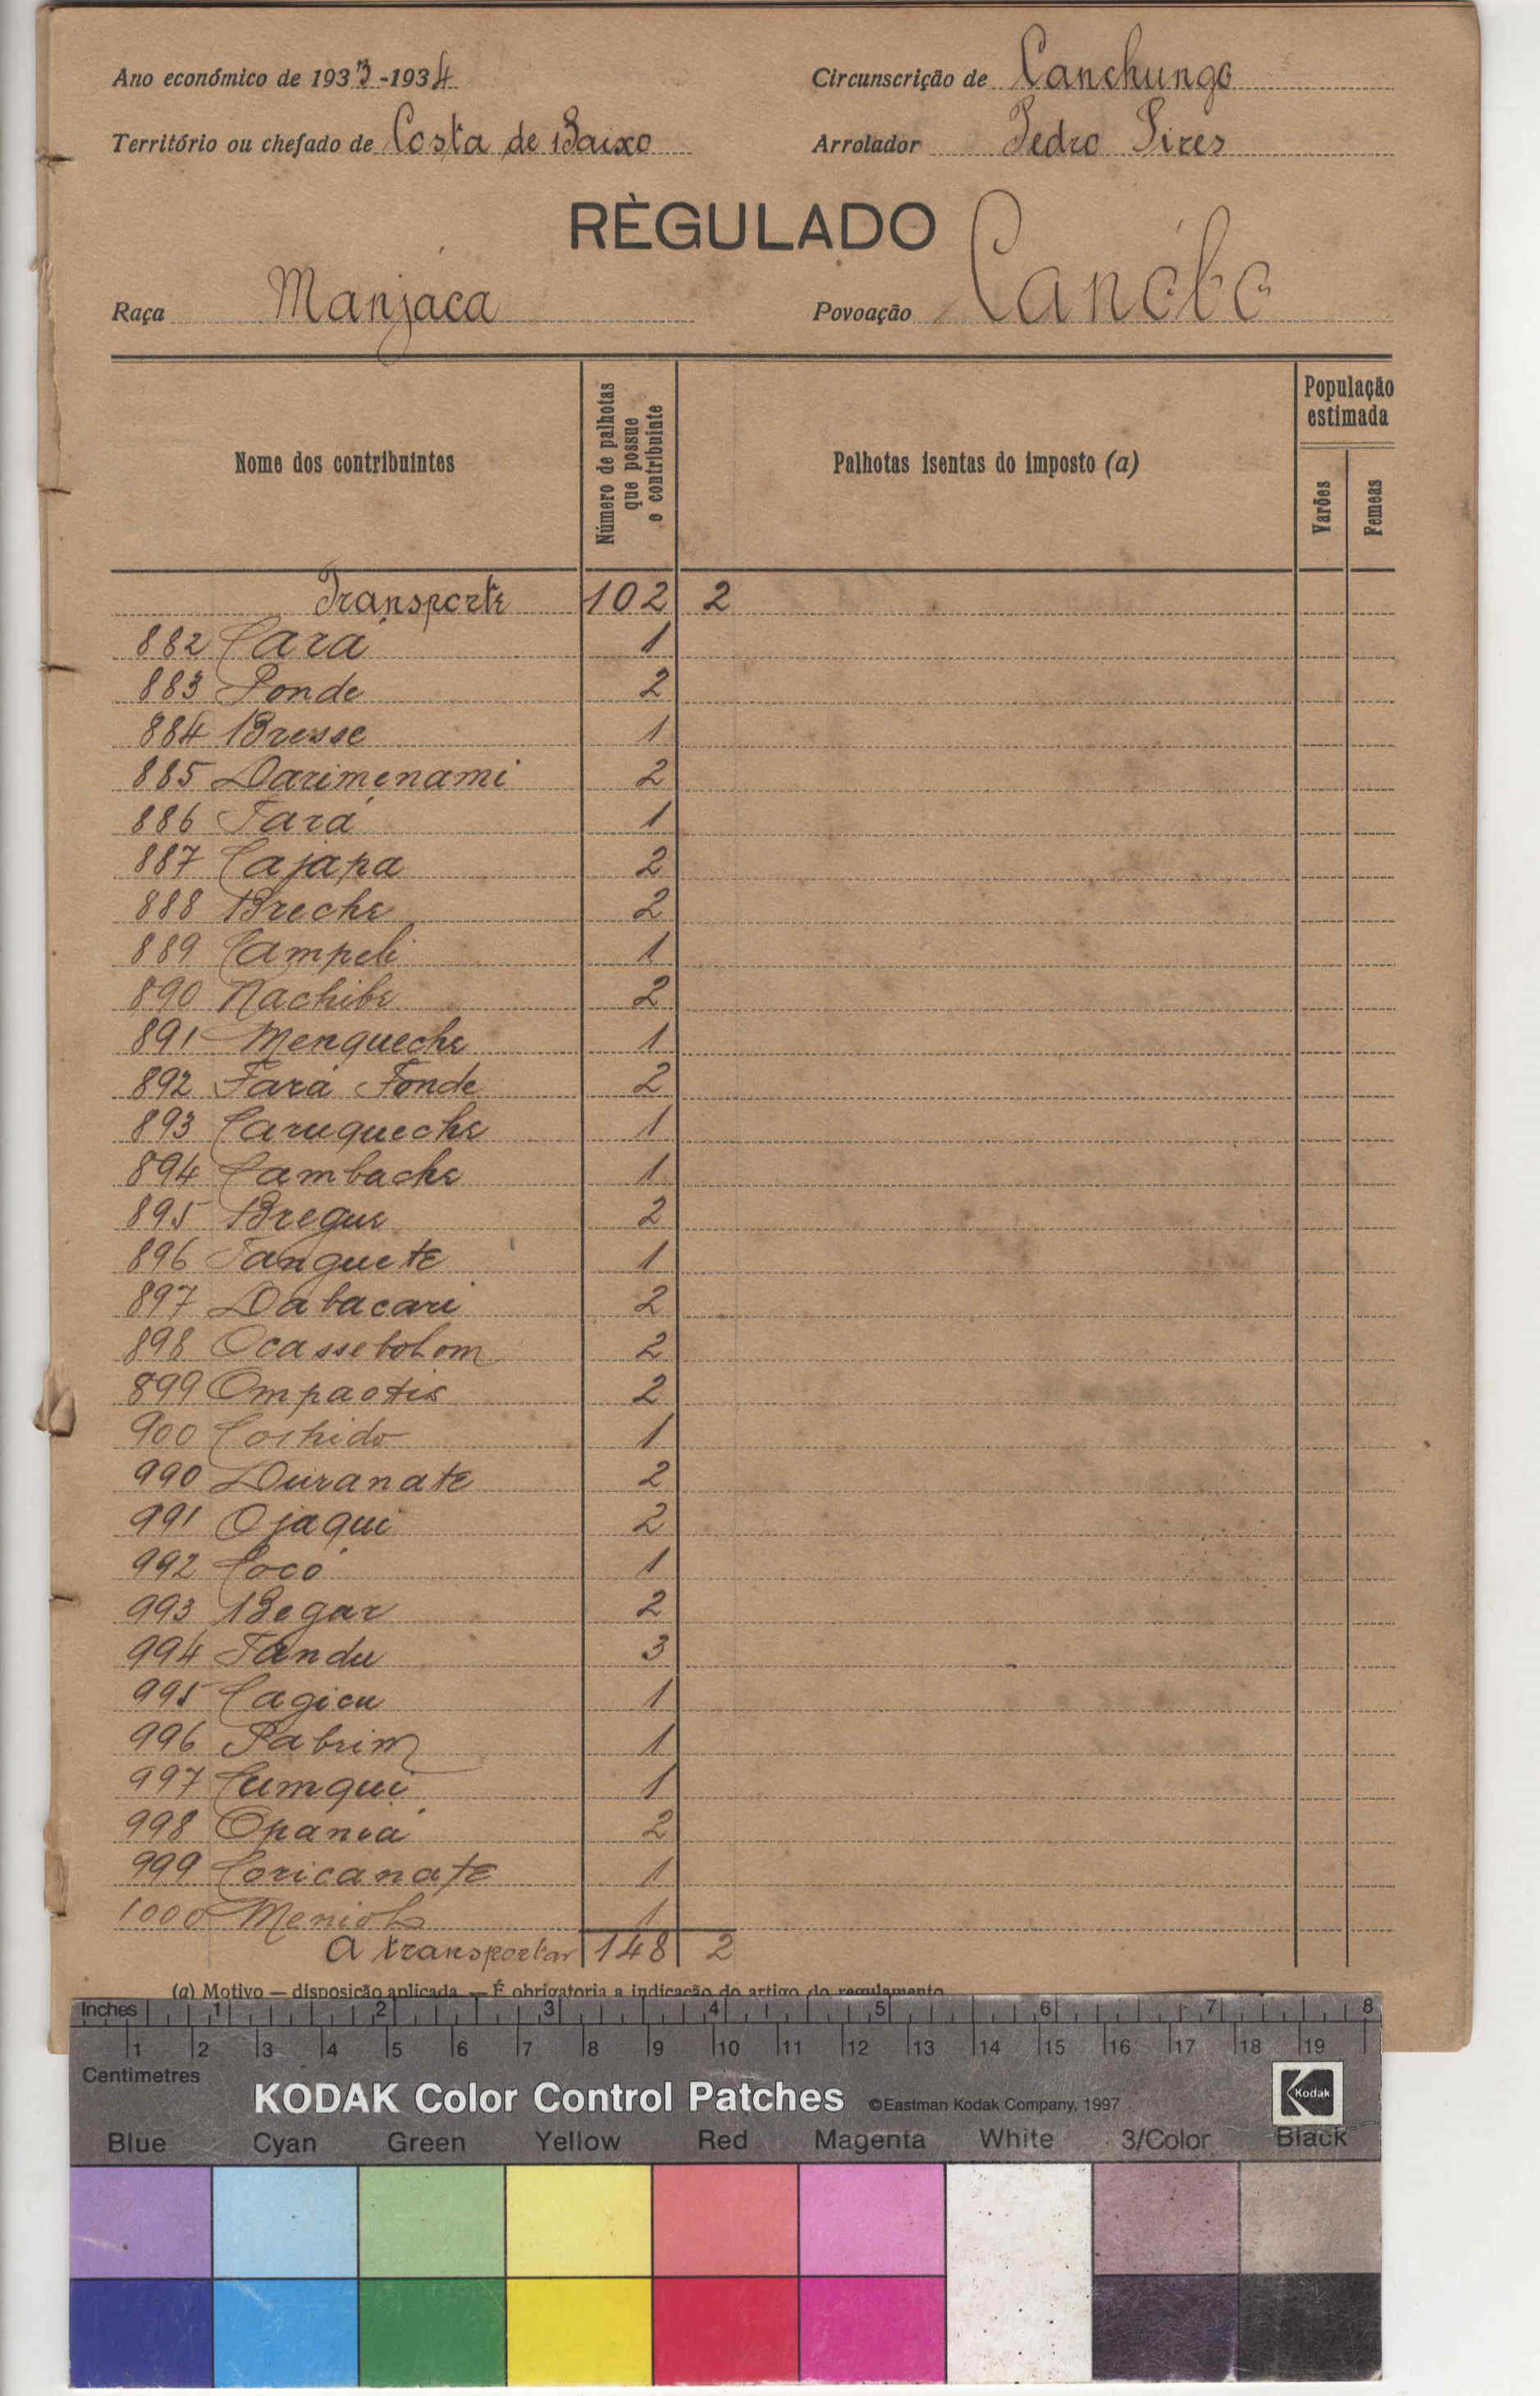 Ano económico de 1933-1934
Circunscrição de Canchungo
Território ou chefado de Costa de Baixo
Arrolador Pedro Pires
RÈGULADO
Raça Manjaca
Povoação Canóbo
Nome dos contribuintes
Número de palhotas que possue o contribuinte
Palhotas isentas do imposto (a)
População estimada
Varões
Femeas
Transporte 102 2
882 Cará 1
883 Ponde 2
884 Bresse 1
885 Darimenami 2
886 Fará 1
887 Cajapa 2
888 Breche 2
889 Campeli 1
890 Nachibe 2
891 Menqueche 1
892 Fará Fonde 2
893 Caruqueche 1
894 Cambache 1
895 Bregue 2
896 Tanguete 1
897 Dabacari 2
898 Ocassebolom 2
899 Ompaotis 2
900 1
990 Duranate 2
991 Ojaqui 2
992 Cocó 1
993 Begar 2
994 Tandu 3
995 Cagicu 1
996 Pabrim 1
997 Cumqui 1
998 Opaniá 2
999 Coricanate 1
1000 1
A transportar 148 2
(a) Motivo — disposição aplicada. — É obrigatoria a indicação do artigo do regulamento
Inches 1 2 3 4 5 6 7 8
1 2 3 4 5 6 7 8 9 10 11 12 13 14 15 16 17 18 19
Centimetres
KODAK Color Control Patches ©Eastman Kodak Company, 1997
Kodak
Blue Cyan Green Yellow Red Magenta White 3/Color Black